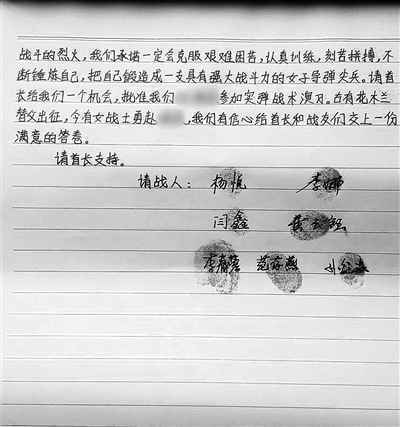 战斗的烈火，我们承诺一定会克服艰难困苦，认真训练，刻苦拼搏，不
断锤炼自己，把自己锻造成一支具有强大战斗力的女子导弹尖兵。请首
长给我们一个机会，批准我们 参加实弹战术演习。古有花木兰
替父出征，今有女战士勇赴 ，我们有信心给首长和战友们交上一份
满意的答卷。
请首长支持。
请战人：杨 李娜
闫鑫
李 燕